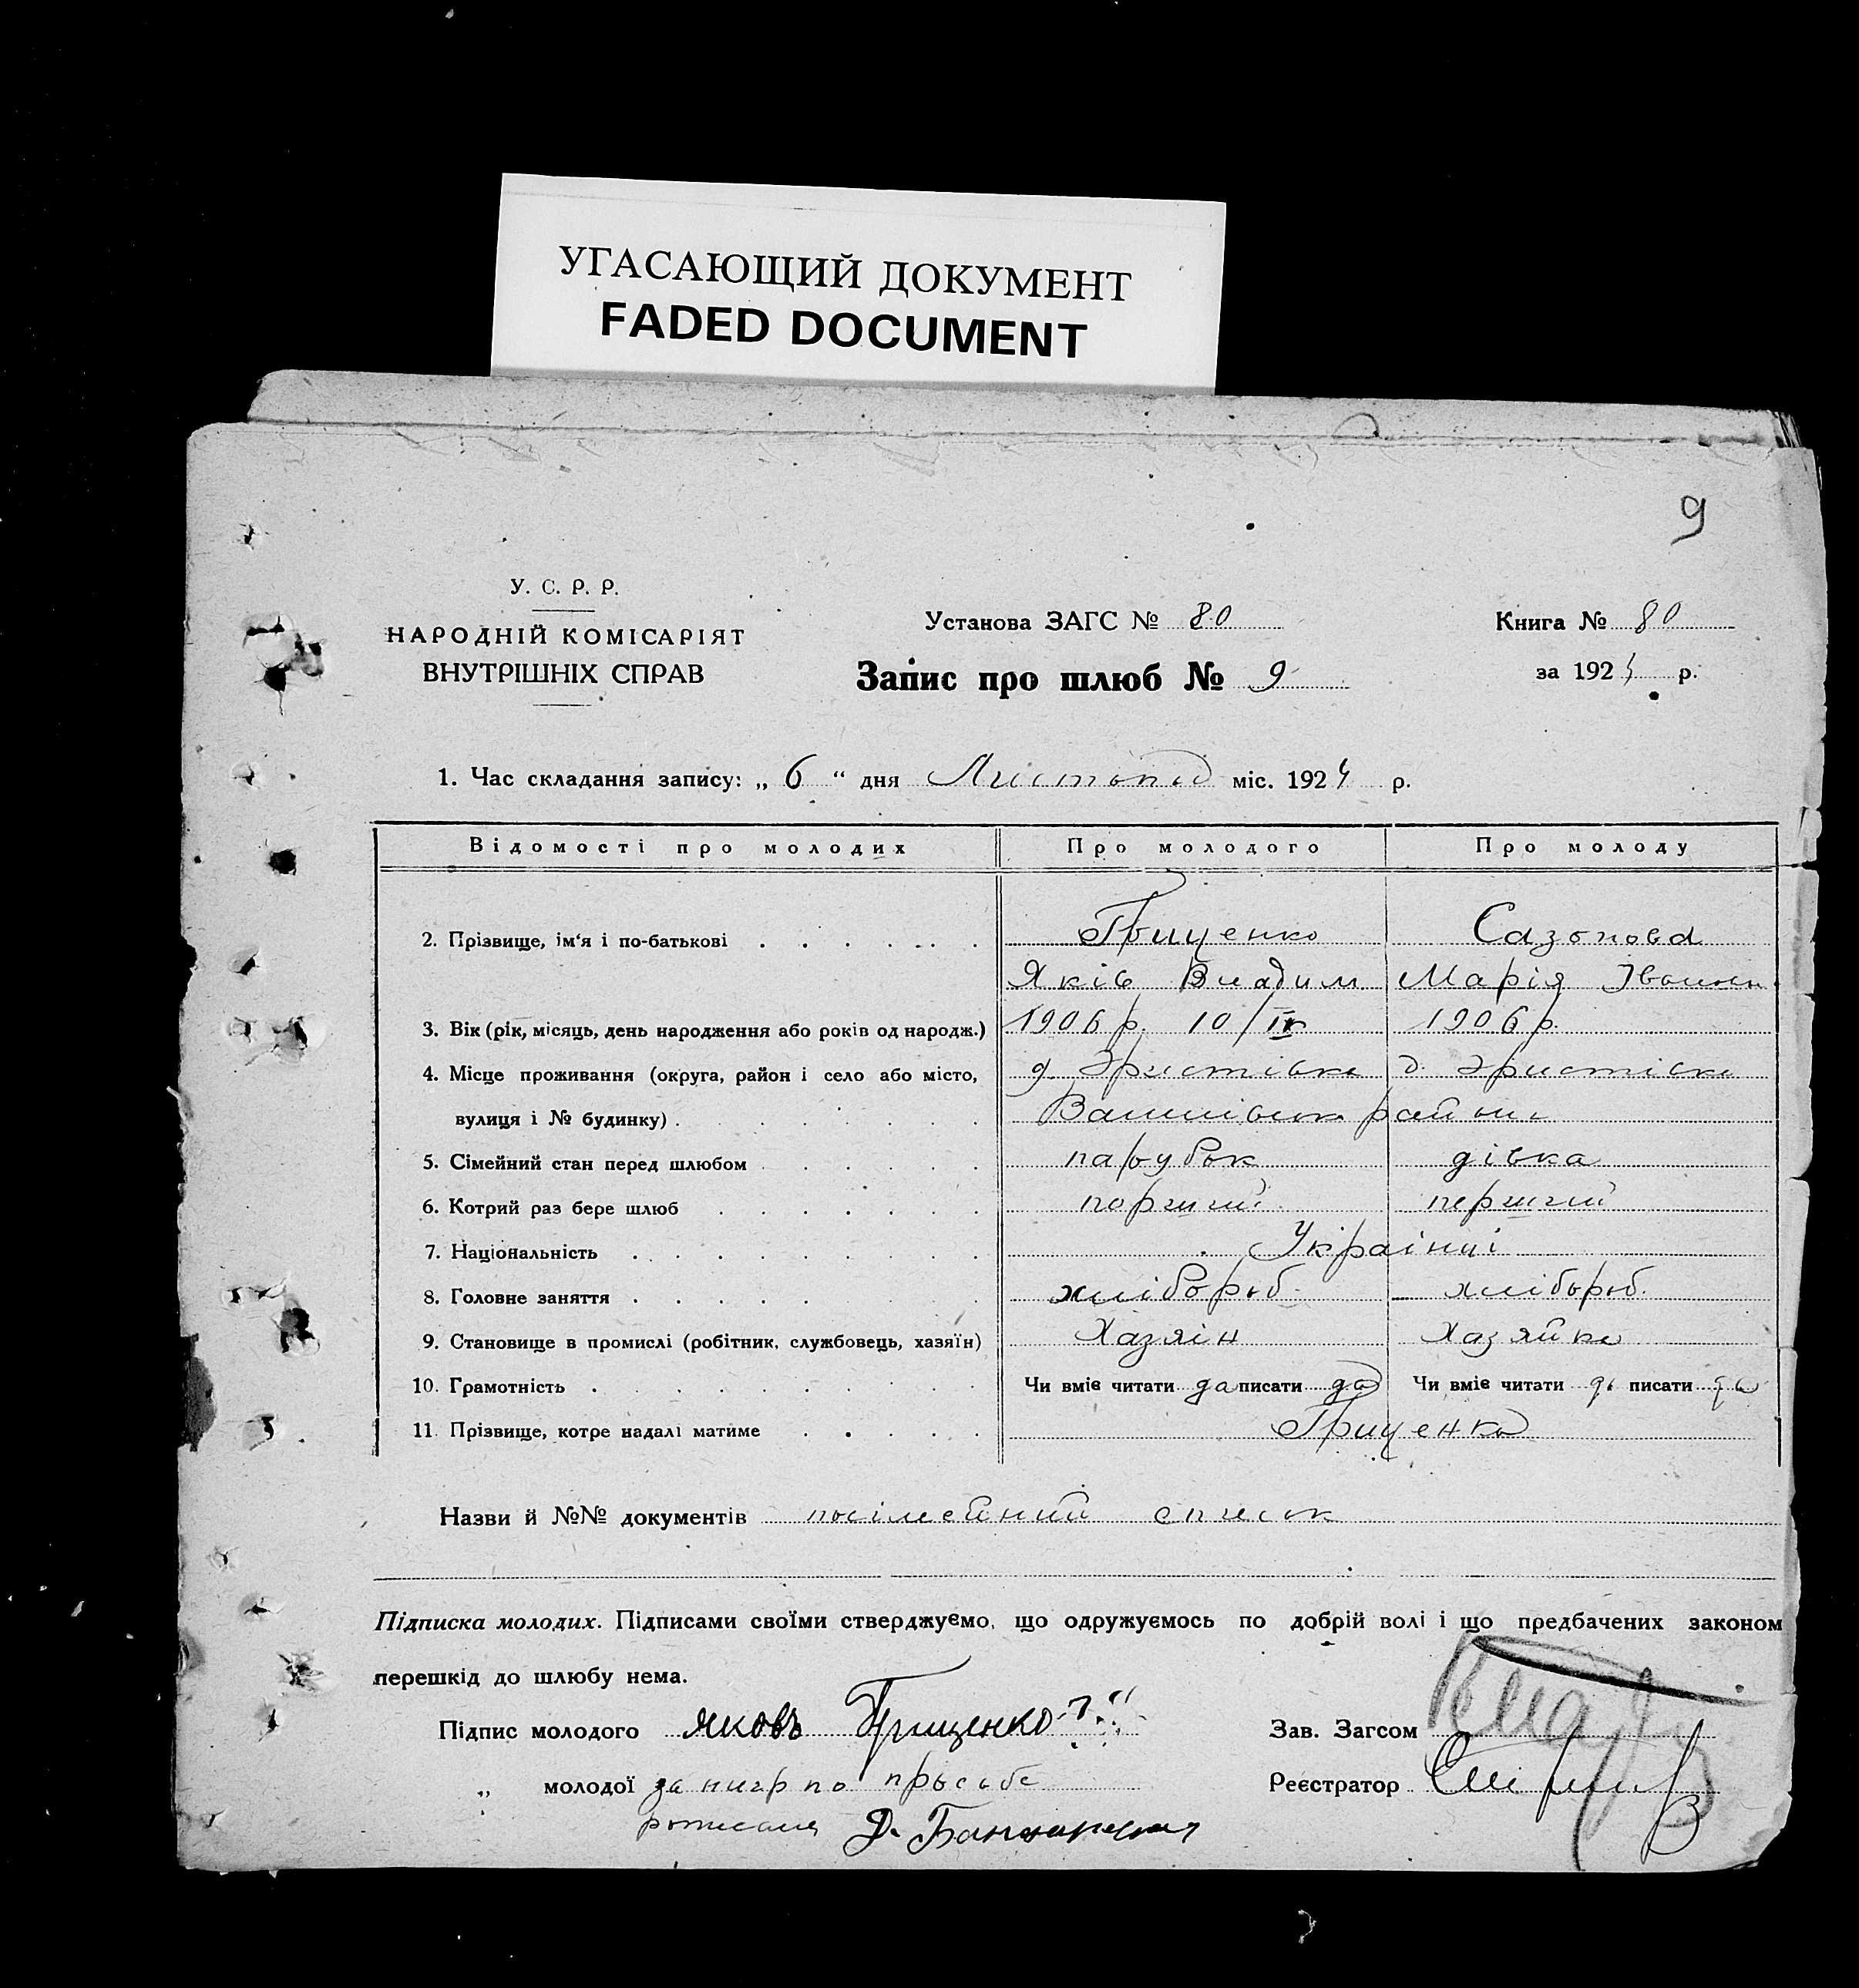 УГАСАЮЩИЙ ДОКУМЕНТ
FADED DOCUMENT
9
У. С. Р. Р.
НАРОДНІЙ КОМІСАРІЯТ
ВНУТРІШНІХ СПРАВ
Установа ЗАГС № 80
Запис про шлюб № 9
Книга № 80
за 1924 р.
1. Час складання запису: „ 6 “ дня Листопад міс. 1924 р.
Відомості про молодих Про молодого Про молоду
2. Прізвище, ім‘я і по-батькові Грищенко Сазонова
Яків Владим Марія Іванен.
3. Вік (рік, місяць, день народження або років од народж.) 1906 р. 10/IV 1906 р.
4. Місце проживання (округа, район і село або місто, д. Эристівка д. Эристівка
вулиця і № будинку) району
5. Сімейний стан перед шлюбом парубок дівка
6. Котрий раз бере шлюб перший перший
7. Національність Українці
8. Головне заняття хлібороб. хлібороб.
9. Становище в промислі (робітник, службовець, хазяїн) Хазяін Хазяйка
10. Грамотність Чи вміє читати да писати да Чи вміє читати да писати да
11. Прізвище, котре надалі матиме Грищенко
Назви й №№ документів посімейний список
Підписка молодих. Підписами своїми стверджуємо, що одружуємось по добрій волі і що предбачених законом
перешкід до шлюбу нема.
Підпис молодого Яковъ Грищенко Зав. Загсом
„ молодої за по просьбе Реєстратор
Д.